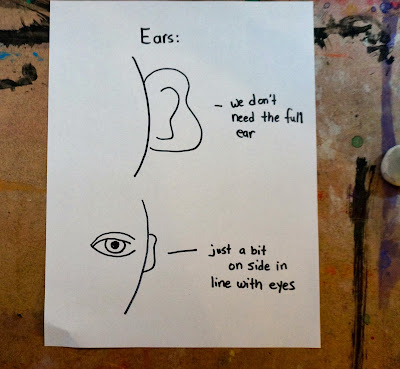 Ears:
– we don't
need the full
ear
— just a bit
on side in
line with eyes